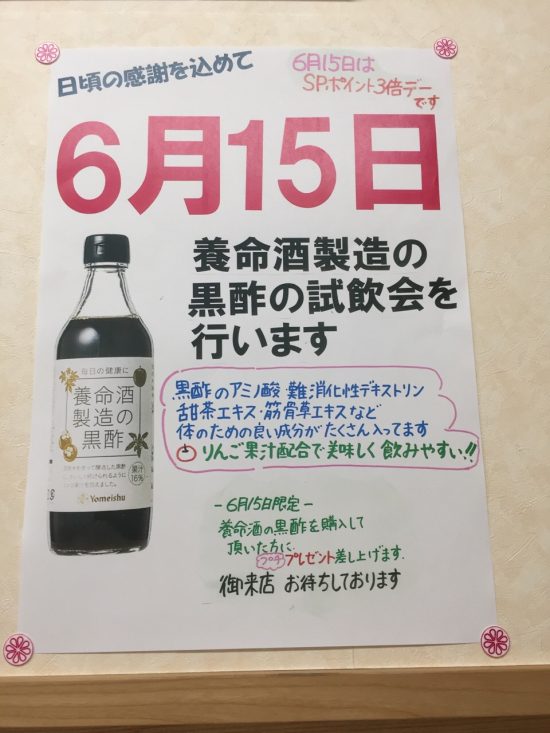 日頃の感謝を込めて
6月15日は
SPポイント3倍デー
です
6月15日
養命酒製造の
黒酢の試飲会を
行います
毎日の健康に
養命酒
製造の
黒酢
果汁
16%
Yomeishu
黒酢のアミノ酸・難消化性デキストリン
甜茶エキス・筋骨草エキスなど
体のための良い成分がたくさん入ってます
りんご果汁配合で美味しく飲みやすい!!
-6月15日限定-
養命酒の黒酢を購入して
頂いた方に、
プチプレゼント差し上げます.
御来店 お待ちしております